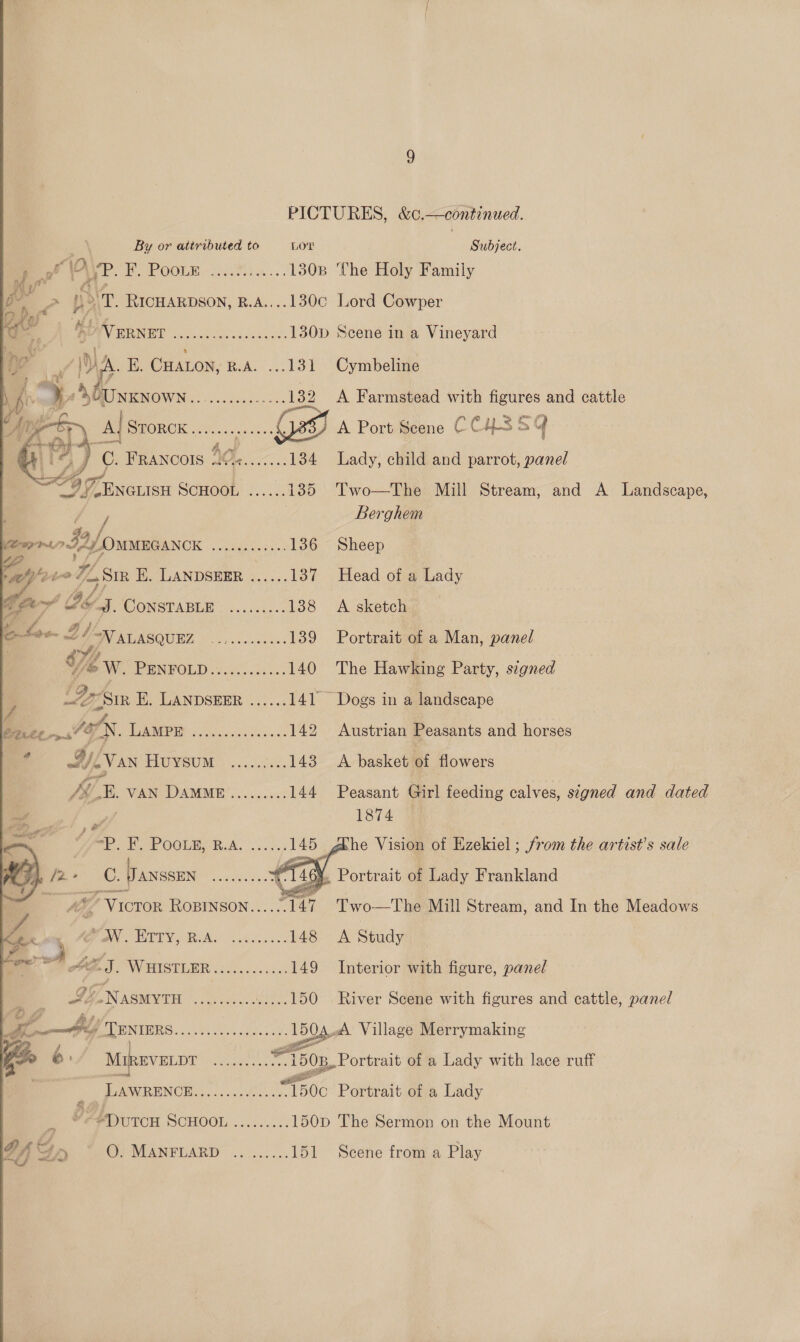 9
PICTURES, &c.—continued.
By or attributed to LOT Subject.
P. F. POOLE ............130B The Holy Family
T. RICHARDSON, R.A....130C Lord Cowper
VERNET ..................130D Scene in a Vineyard
A. E. CHALON, R.A. ...131 Cymbeline
UNKNOWN ...............132 A Farmstead with figures and cattle
A. STORCK ...............133 A Port Scene CC4359
C. FRANCOIS ............134 Lady, child and parrot, panel
ENGLISH SCHOOL ......135 Two—The Mill Stream, and A Landscape,
Berghem
OMMEGANCK ............136 Sheep
SIR E. LANDSEER ......137 Head of a Lady
J. CONSTABLE .........138 A sketch
VALASQUEZ ............139 Portrait of a Man, panel
W. PENFOLD ............140 The Hawking Party, signed
SIR E. LANDSEER ......141 Dogs in a landscape
N. LAMPE ...............142 Austrian Peasants and horses
VAN HUYSUM .........143 A basket of flowers
E. VAN DAMME .........144 Peasant Girl feeding calves, signed and dated
1874
P. F. POOLE, R.A. ......145 The Vision of Ezekiel; from the artist's sale
C. JANSSEN .........146 Portrait of Lady Frankland
VICTOR ROBINSON ......147 Two—The Mill Stream, and In the Meadows
W. ETTY, R.A. .........148 A Study
J. WHISTLER ............149 Interior with figure, panel
NASMYTH ...............150 River Scene with figures and cattle, panel
TENIERS ..................150A A Village Merrymaking
MIREVELDT ............150B Portrait of a Lady with lace ruff
LAWRENCE ...............150C Portrait of a Lady
DUTCH SCHOOL .........150D The Sermon on the Mount
O. MANFLARD .........151 Scene from a Play